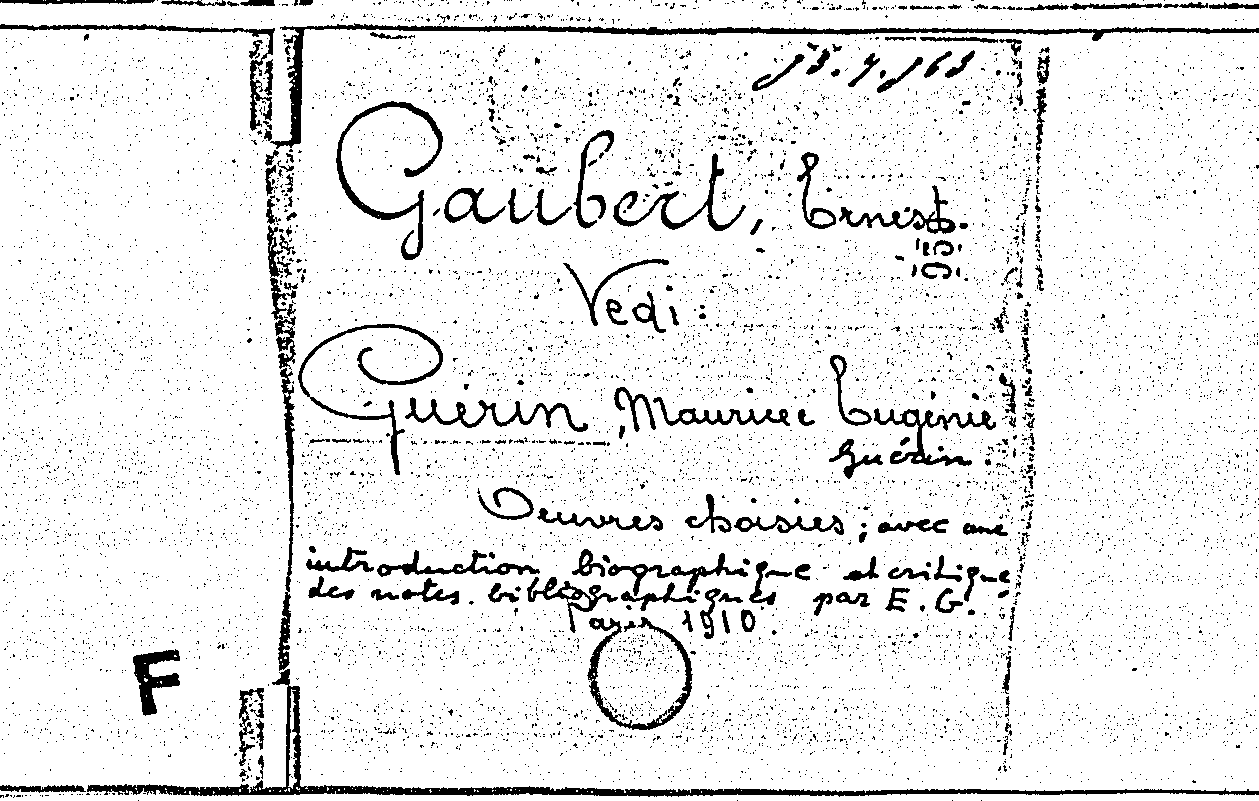 13.7.163
Gaubert, Ernest.
Vedi:
Guérin, Maurice e Eugénie
Guérin.
Oeuvres choisies; avec une
introduction biographique et critique
des notes bibliographiques par E. G.
Paris 1910.
F